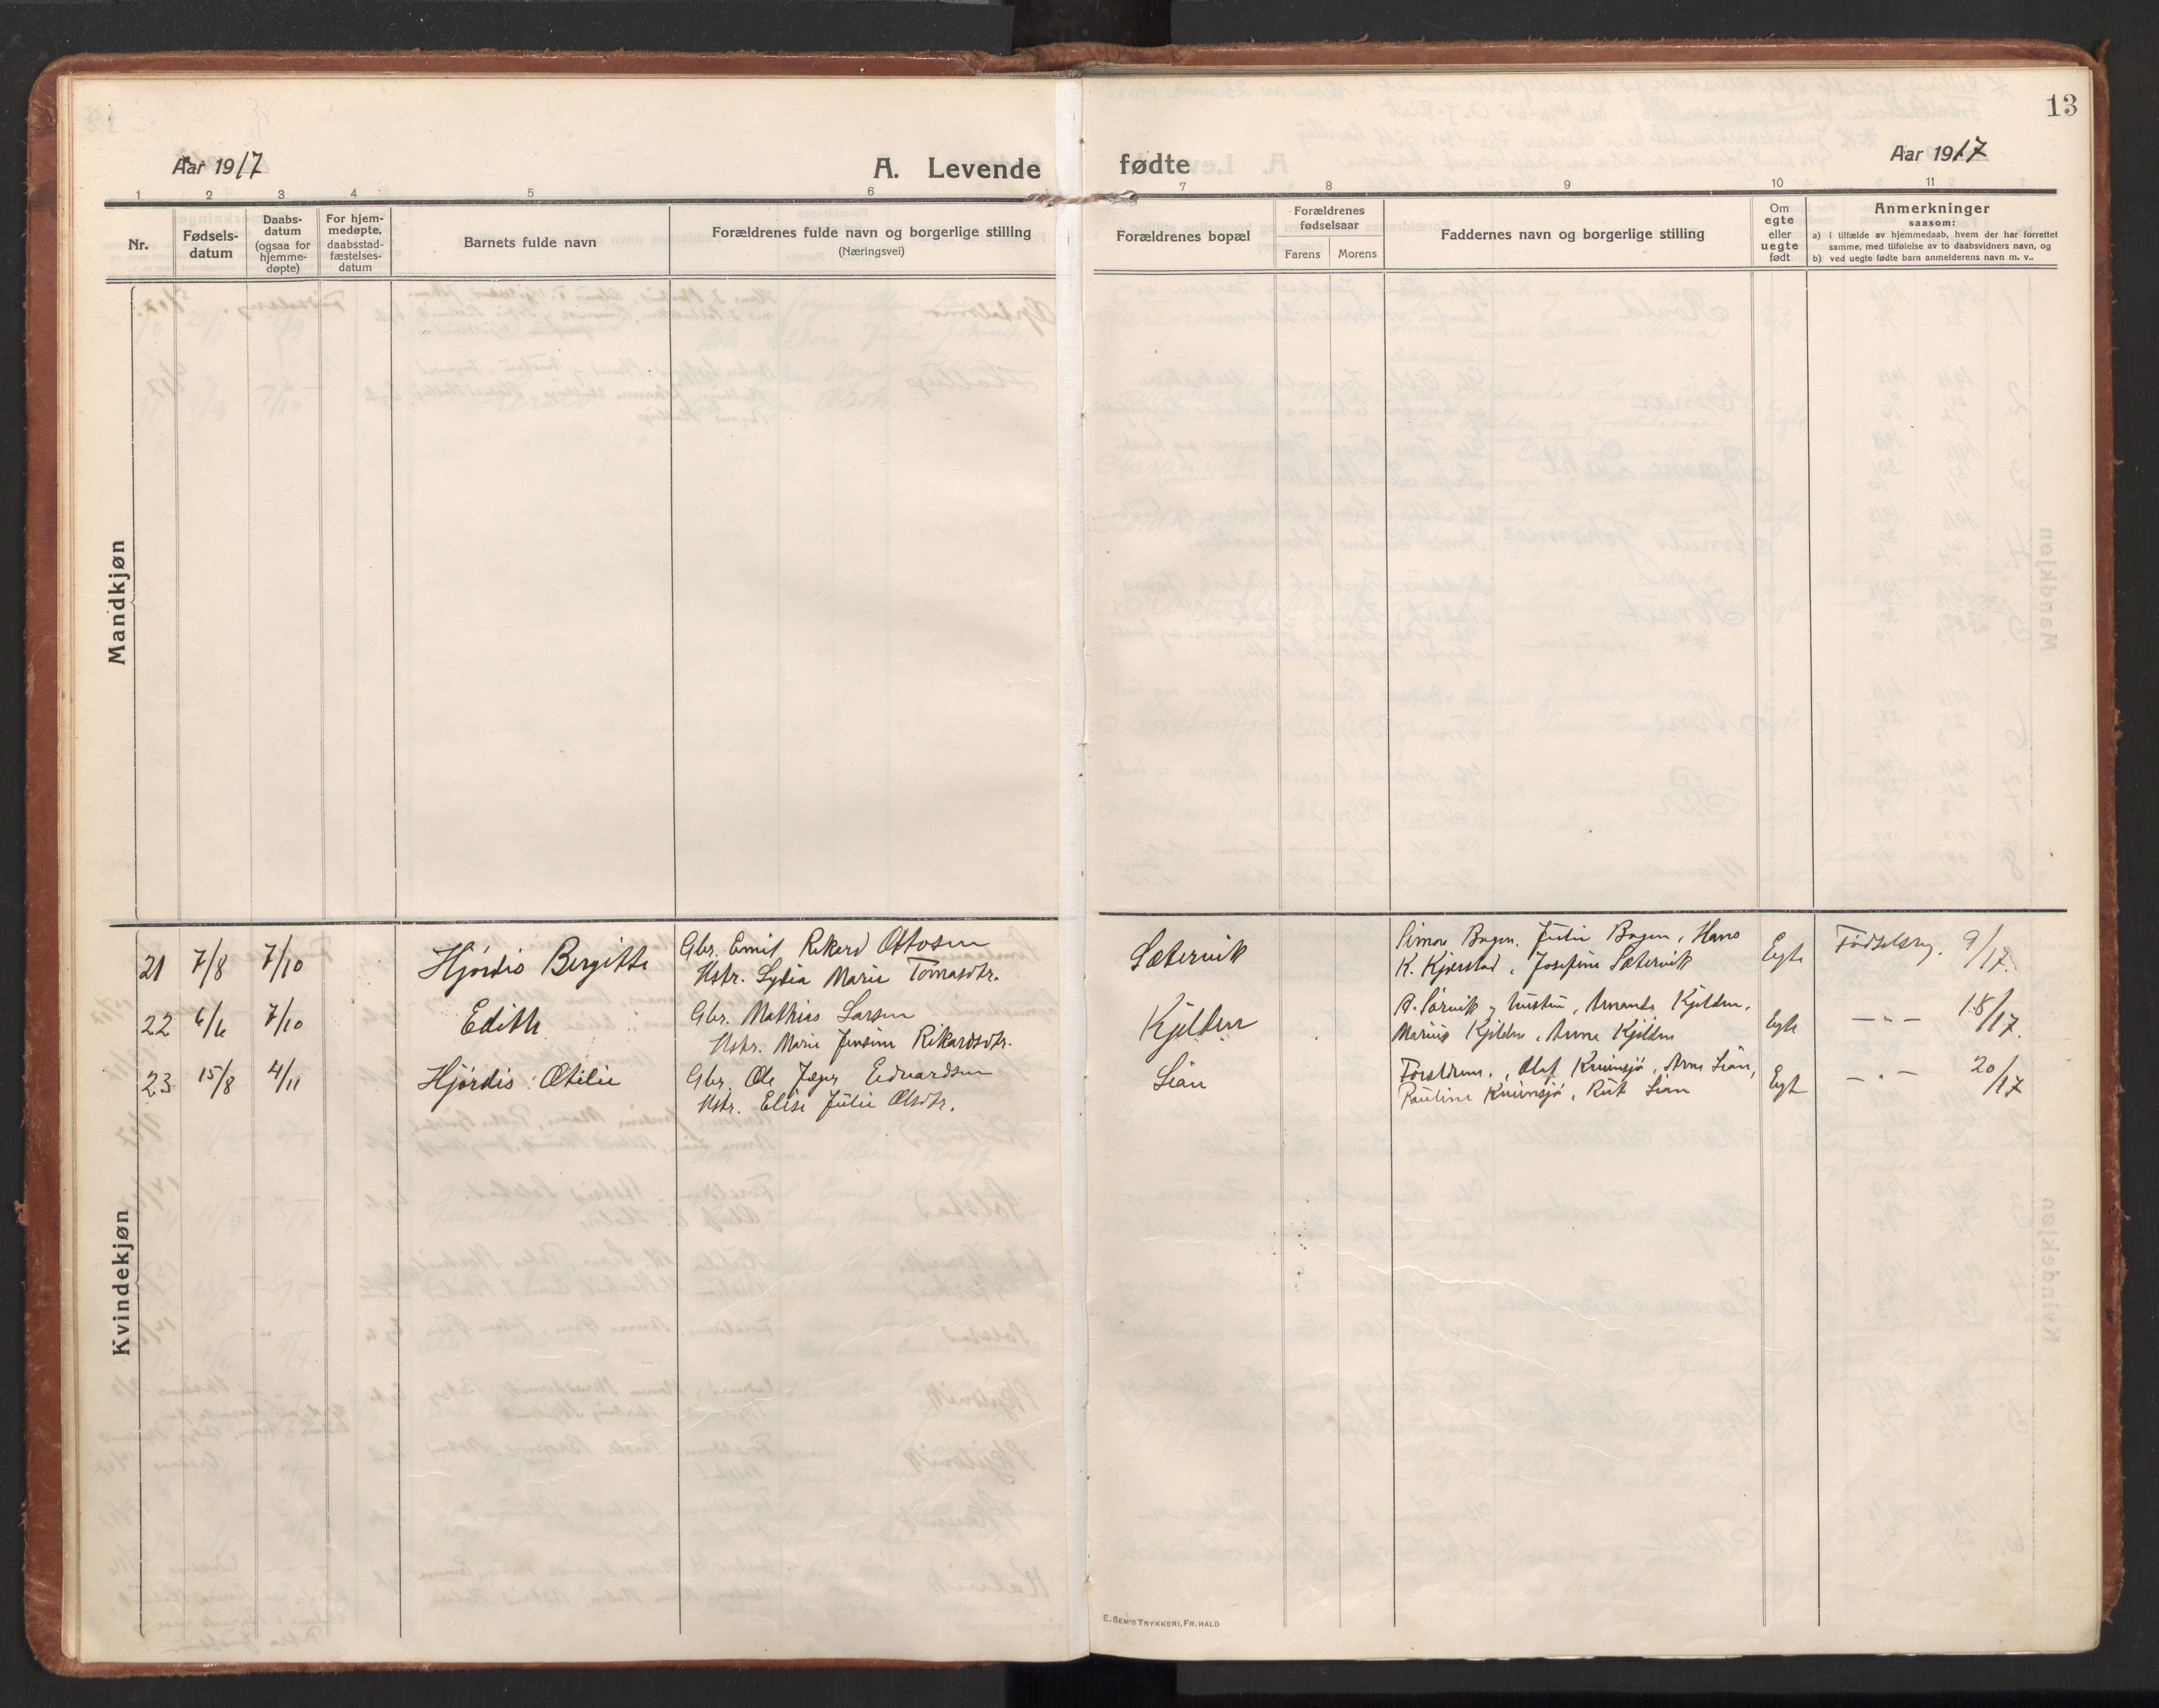 13
Aar 1917
A. Levende fødte
Aar 1917
1 2 3 4 5 6 7 8 9 10 11
Nr.
Fødsels-
datum
Daabs-
datum
(ogsaa for
hjemme-
døpte)
For hjem-
medøpte,
daabsstad-
fæstelses-
datum
Barnets fulde navn
Forældrenes fulde navn og borgerlige stilling
(Næringsvei)
Forældrenes bopæl
Forældrenes
fødselsaar
Farens Morens
Faddernes navn og borgerlige stilling
Om
egte
eller
uegte
født
Anmerkninger
saasom:
a) i tilfælde av hjemmedaab, hvem der har forrettet
samme, med tilføielse av to daabsvidners navn, og
b) ved uegte fødte barn anmelderens navn m. v..
Mandkjøn
Kvindekjøn
21 7/8 7/10 Hjørdis Bergitte
Gbr. Emil Rikard Ottosen
Hstr. Lydia Marie Tomasdtr.
Sætervik
Simon Bogen, Julie Bogen, Hans
K. Kjerstad, Josefine Sætervik
Egte Fødselsreg. 9/17.
22 6/6 7/10 Edith
Gbr. Mathias Larsen
Hstr. Marie Jensine Rikardsdtr.
Kjelden
A. Sørvik og hustru, Amanda Kjelden,
Marius Kjelden, Anna Kjelden
Egte — " — 18/17.
23 15/8 4/11 Hjørdis Otilie
Gbr. Ole Jæger Edvardsen
Hstr. Elise Julie Olsdtr.
Lian
Foreldrene, Olaf Kruinsjø, Arne Lian,
Pauline Kruinsjø, Rut Lian
Egte — " — 20/17
E. SEM'S TRYKKERI, FR.HALD